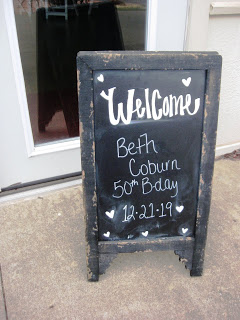 Welcome
Beth
Coburn
50th B-day
12-21-19